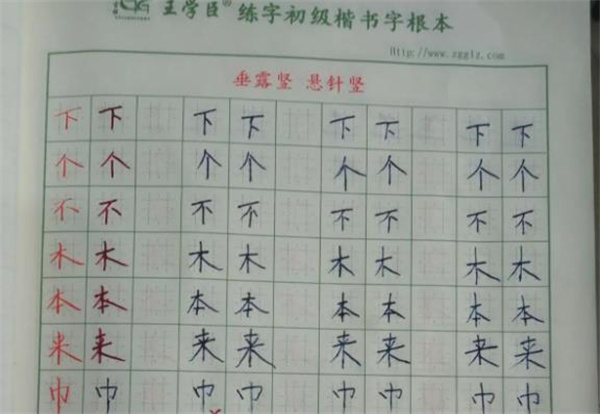 王学臣® 练字初级楷书字根本
Http://www.zgglz.com
垂露竖 悬针竖
下 下 下 下 下 下 下 下
个 个 个 个 个 个 个 个
不 不 不 不 不 不 不 不
木 木 木 木 木 木 木 木
本 本 本 本 本 本 本 本
来 来 来 来 来 来 来 来
巾 巾 巾 巾 巾 巾 巾 巾